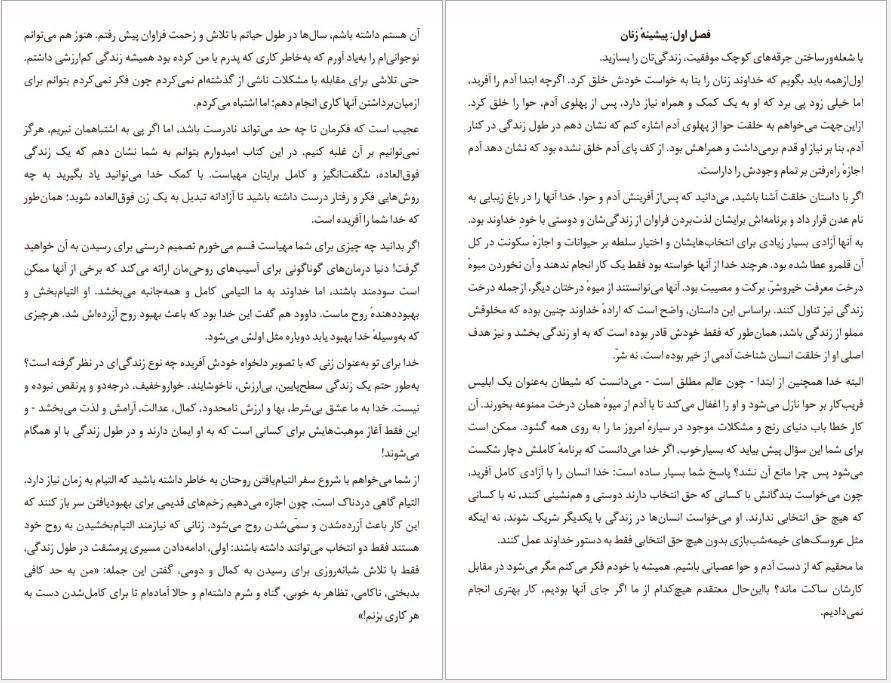 فصل اول: پیشینهٔ زنان
با شعله‌ورساختن جرقه‌های کوچک موفقیت، زندگی‌تان را بسازید.
اول‌ازهمه باید بگویم که خداوند زنان را بنا به خواست خودش خلق کرد. اگرچه ابتدا آدم را آفرید،
اما خیلی زود پی برد که او به یک کمک و همراه نیاز دارد، پس از پهلوی آدم، حوا را خلق کرد.
ازاین‌جهت می‌خواهم به خلقت حوا از پهلوی آدم اشاره کنم که نشان دهم در طول زندگی در کنار
آدم، بنا بر نیاز او قدم برمی‌داشت و همراهش بود. از کف پای آدم خلق نشده بود که نشان دهد آدم
اجازهٔ راه‌رفتن بر تمام وجودش را داراست.
اگر با داستان خلقت آشنا باشید، می‌دانید که پس‌از آفرینش آدم و حوا، خدا آنها را در باغ زیبایی به
نام عدن قرار داد و برنامه‌اش برایشان لذت‌بردن فراوان از زندگی‌شان و دوستی با خودِ خداوند بود.
به آنها آزادی بسیار زیادی برای انتخاب‌هایشان و اختیار سلطه بر حیوانات و اجازهٔ سکونت در کل
آن قلمرو عطا شده بود. هرچند خدا از آنها خواسته بود فقط یک کار انجام ندهند و آن نخوردن میوهٔ
درخت معرفت خیروشرّ، برکت و مصیبت بود. آنها می‌توانستند از میوهٔ درختان دیگر، ازجمله درخت
زندگی نیز تناول کنند. براساس این داستان، واضح است که ارادهٔ خداوند چنین بوده که مخلوقش
مملو از زندگی باشد، همان‌طور که فقط خودش قادر بوده است که به او زندگی بخشد و نیز هدف
اصلی او از خلقت انسان شناخت آدمی از خیر بوده است، نه شرّ.
البته خدا همچنین از ابتدا - چون عالِم مطلق است - می‌دانست که شیطان به‌عنوان یک ابلیس
فریب‌کار بر حوا نازل می‌شود و او را اغفال می‌کند تا با آدم از میوهٔ همان درخت ممنوعه بخورند. آن
کار خطا باب دنیای رنج و مشکلات موجود در سیارهٔ امروز ما را به روی همه گشود. ممکن است
برای شما این سؤال پیش بیاید که بسیارخوب، اگر خدا می‌دانست که برنامهٔ کاملش دچار شکست
می‌شود پس چرا مانع آن نشد؟ پاسخ شما بسیار ساده است: خدا انسان را با آزادی کامل آفرید،
چون می‌خواست بندگانش با کسانی که حق انتخاب دارند دوستی و هم‌نشینی کنند، نه با کسانی
که هیچ حق انتخابی ندارند. او می‌خواست انسان‌ها در زندگی با یکدیگر شریک شوند، نه اینکه
مثل عروسک‌های خیمه‌شب‌بازی بدون هیچ حق انتخابی فقط به دستور خداوند عمل کنند.
ما محقیم که از دست آدم و حوا عصبانی باشیم. همیشه با خودم فکر می‌کنم مگر می‌شود در مقابل
کارشان ساکت ماند؟ بااین‌حال معتقدم هیچ‌کدام از ما اگر جای آنها بودیم، کار بهتری انجام
نمی‌دادیم.
آن هستم داشته باشم، سال‌ها در طول حیاتم با تلاش و زحمت فراوان پیش رفتم. هنوز هم می‌توانم
نوجوانی‌ام را به‌یاد آورم که به‌خاطر کاری که پدرم با من کرده بود همیشه زندگی کم‌ارزشی داشتم.
حتی تلاشی برای مقابله با مشکلات ناشی از گذشته‌ام نمی‌کردم چون فکر نمی‌کردم بتوانم برای
ازمیان‌برداشتن آنها کاری انجام دهم؛ اما اشتباه می‌کردم.
عجیب است که فکرمان تا چه حد می‌تواند نادرست باشد، اما اگر پی به اشتباهمان نبریم، هرگز
نمی‌توانیم بر آن غلبه کنیم. در این کتاب امیدوارم بتوانم به شما نشان دهم که یک زندگی
فوق‌العاده، شگفت‌انگیز و کامل برایتان مهیاست. با کمک خدا می‌توانید یاد بگیرید به چه
روش‌هایی فکر و رفتار درست داشته باشید تا آزادانه تبدیل به یک زن فوق‌العاده شوید؛ همان‌طور
که خدا شما را آفریده است.
اگر بدانید چه چیزی برای شما مهیاست قسم می‌خورم تصمیم درستی برای رسیدن به آن خواهید
گرفت! دنیا درمان‌های گوناگونی برای آسیب‌های روحی‌مان ارائه می‌کند که برخی از آنها ممکن
است سودمند باشند، اما خداوند به ما التیامی کامل و همه‌جانبه می‌بخشد. او التیام‌بخش و
بهبوددهندهٔ روح ماست. داوود هم گفت این خدا بود که باعث بهبود روح آزرده‌اش شد. هرچیزی
که به‌وسیلهٔ خدا بهبود یابد دوباره مثل اولش می‌شود.
خدا برای تو به‌عنوان زنی که با تصویر دلخواه خودش آفریده چه نوع زندگی‌ای در نظر گرفته است؟
به‌طور حتم یک زندگی سطح‌پایین، بی‌ارزش، ناخوشایند، خواروخفیف، درجه‌دو و پرنقص نبوده و
نیست. خدا به ما عشق بی‌شرط، بها و ارزش نامحدود، کمال، عدالت، آرامش و لذت می‌بخشد - و
این فقط آغاز موهبت‌هایش برای کسانی است که به او ایمان دارند و در طول زندگی با او همگام
می‌شوند!
از شما می‌خواهم با شروع سفر التیام‌یافتن روحتان به خاطر داشته باشید که التیام به زمان نیاز دارد.
التیام گاهی دردناک است، چون اجازه می‌دهیم زخم‌های قدیمی برای بهبودیافتن سر باز کنند که
این کار باعث آزرده‌شدن و سمّی‌شدن روح می‌شود. زنانی که نیازمند التیام‌بخشیدن به روح خود
هستند فقط دو انتخاب می‌توانند داشته باشند: اولی، ادامه‌دادن مسیری پرمشقت در طول زندگی،
فقط با تلاش شبانه‌روزی برای رسیدن به کمال و دومی، گفتن این جمله: «من به حد کافی
بدبختی، ناکامی، تظاهر به خوبی، گناه و شرم داشته‌ام و حالا آماده‌ام تا برای کامل‌شدن دست به
هر کاری بزنم!»